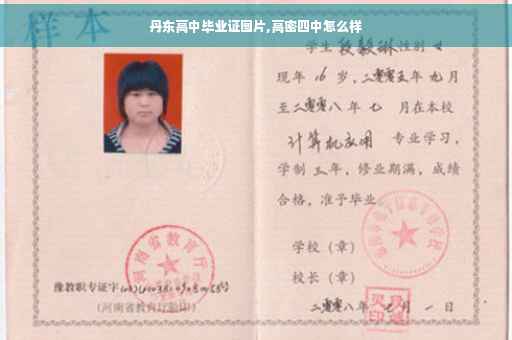 丹东高中毕业证图片,高密四中怎么样
样本
学生 段毅琳 性别 女
现年 16 岁,二零零五年 九月
至二零零八年 七 月在本校
计算机应用 专业学习,
学制 三年,修业期满,成绩
合格,准予毕业
学校(章)
校长(章)
二零零八年 七 月 一 日
河南省教育厅
豫教职专证字
(河南省教育厅验印)